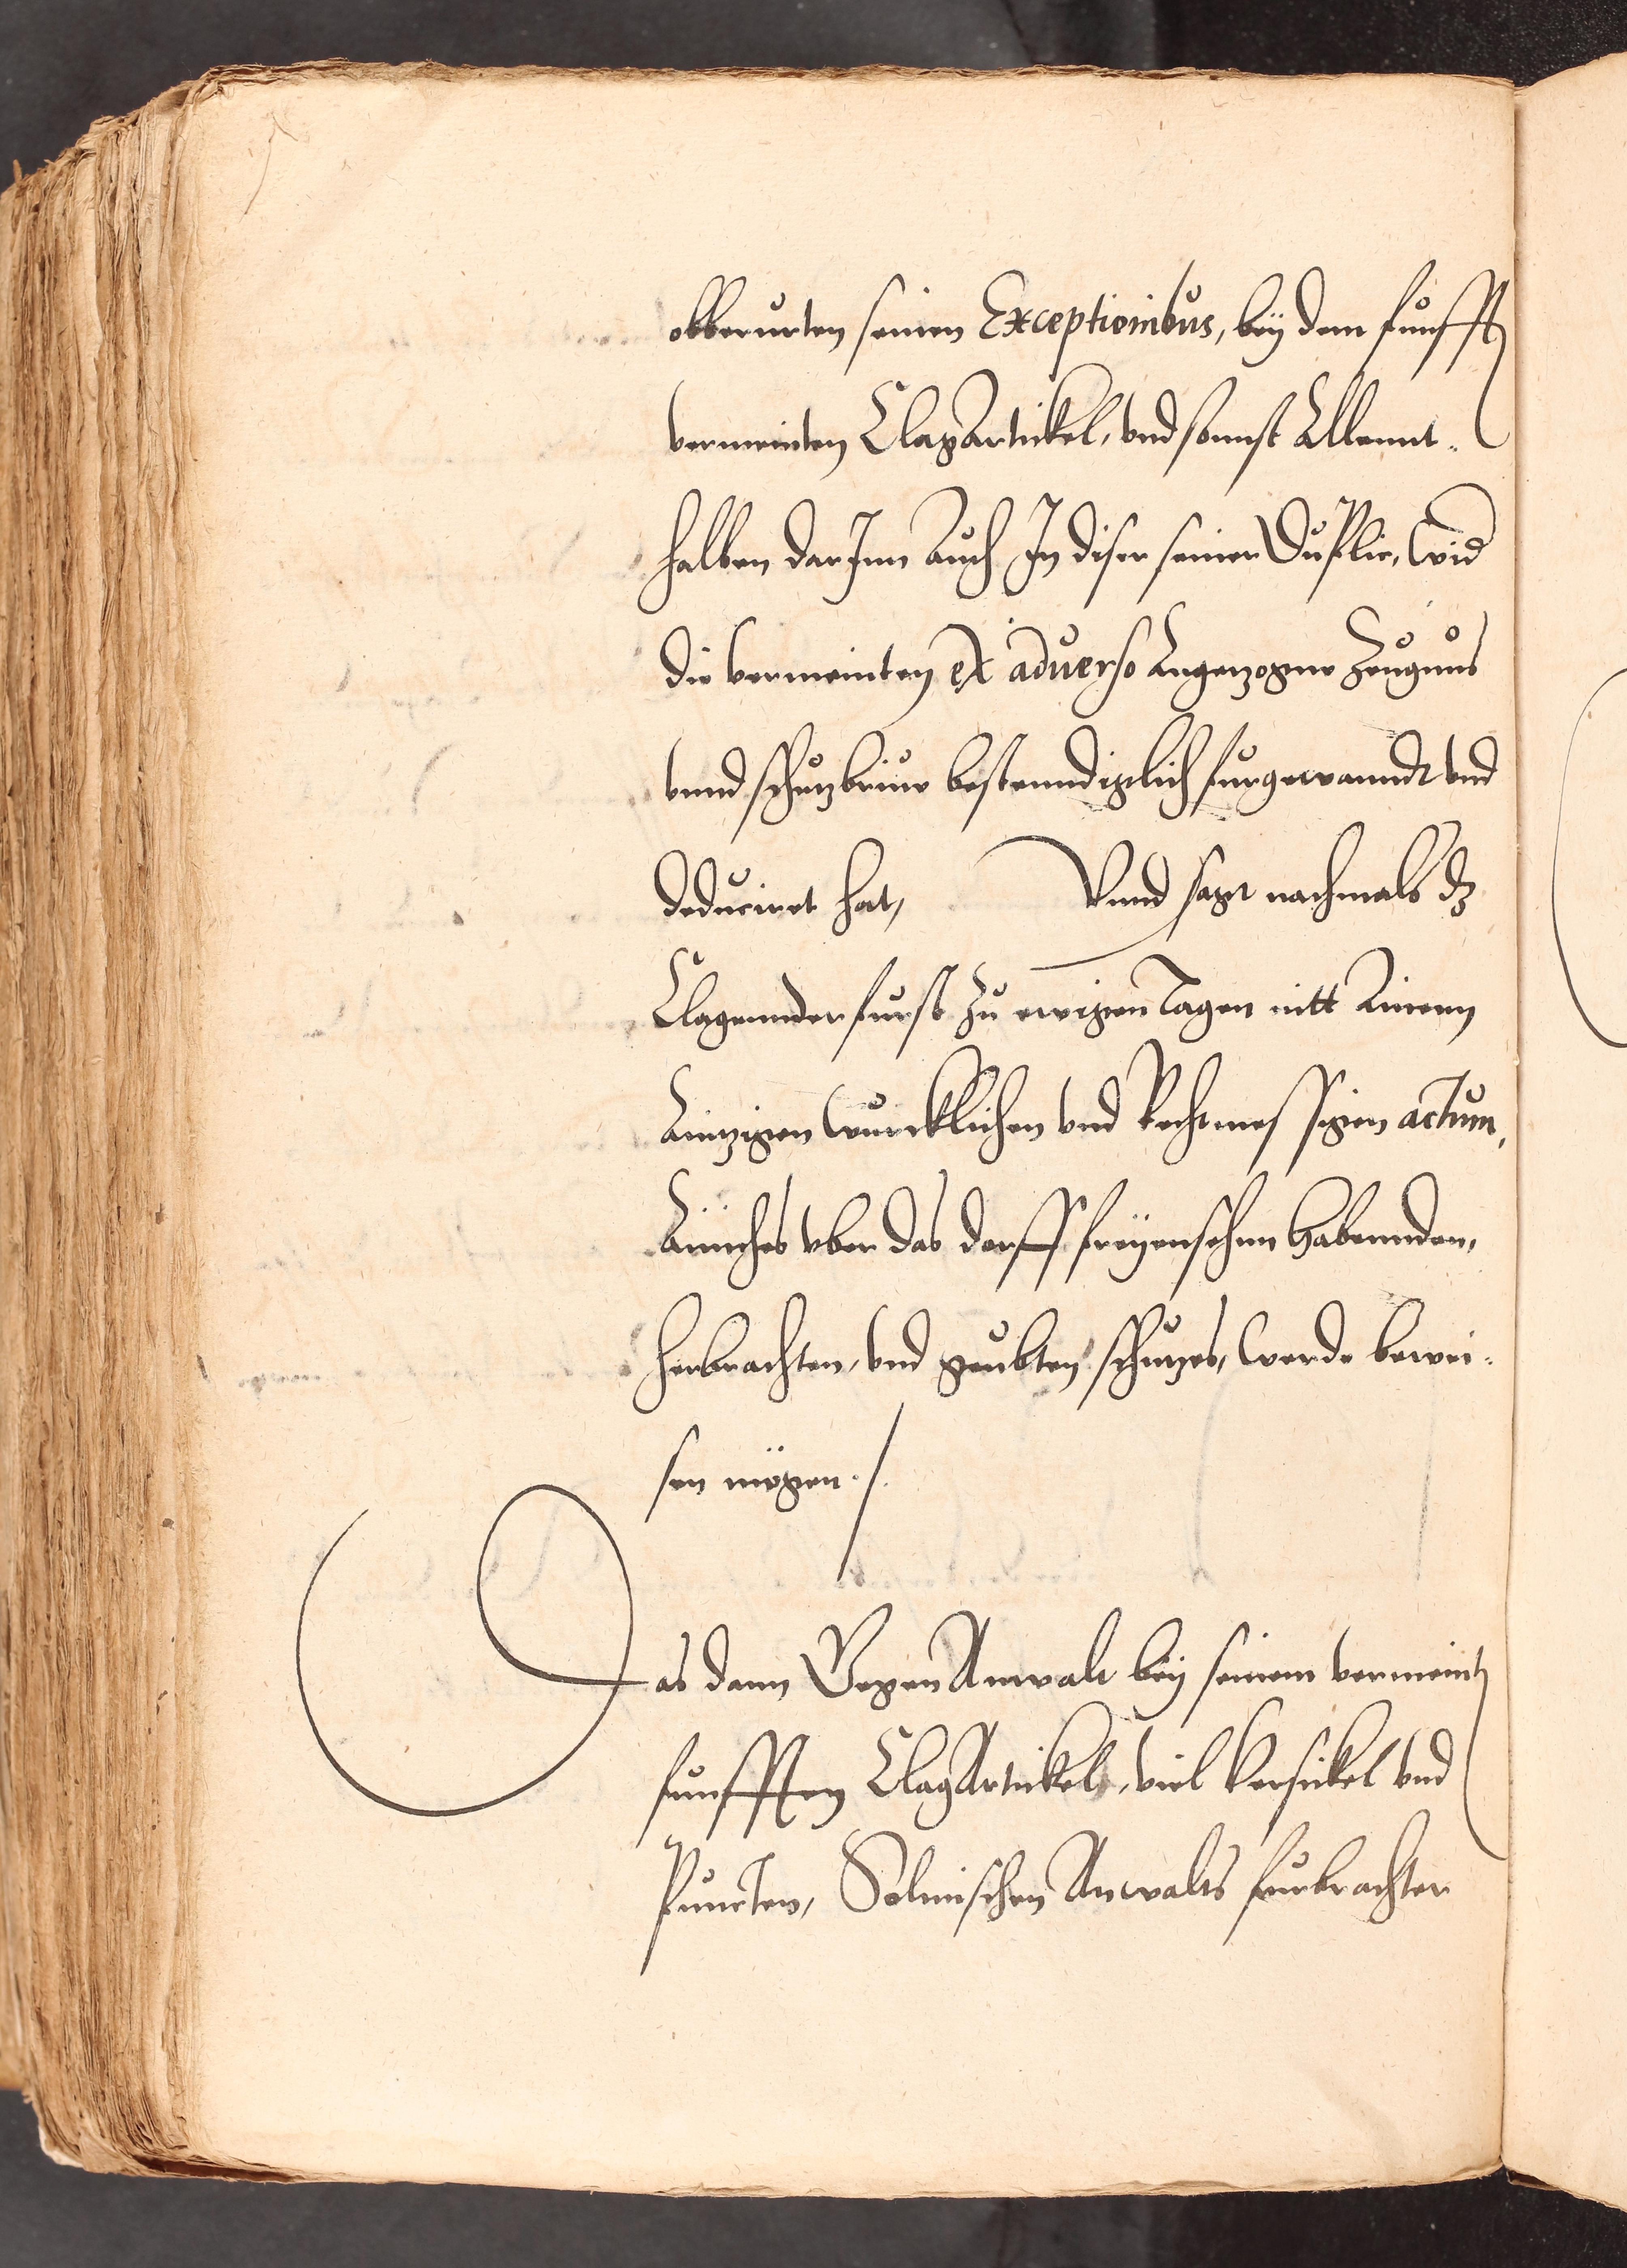 obberurten seinen Exceptionibus, beÿ dem funfft
vermeinten ClagArtickel, vnd sonnst Allennt-
halben darJnn Auch Jn diser seiner Duplic, Wid
die vermeinten ex aduerso Angezogne Zeugnus
vnnd schutzbriue bestenndiglich furgewanndt vnd
deduciret hat, Vnnd sagt nachmals dz
Clagennder furst zu ewigen Tagen nitt Ainenn
Ainzigen Wurcklichen vnd Rechtmessigen actum,
Ainiches vber das dorff freÿensehen habennden,
herbrachten, vnd geubten schutzes, Werde bewei-
sen mögen ./.
Das dann GegenAnwalt beÿ seinem vermeint
funfften ClagArtickel, viel Versickel vnd
Puncten, Solmischen Anwalts furbrachter